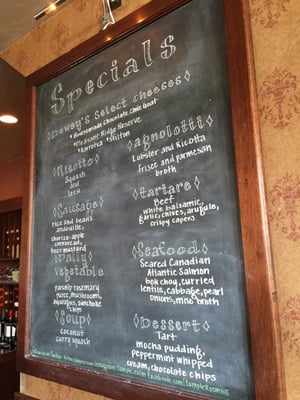 Specials
Dewey's Select cheeses
• Homemade Chocolate Chile Goat
• Pleasant Ridge Reserve
• Garrotxa • Stilton
Risotto
Squash
and
Sausage
rice and beans
andouille,
chorizo-apple
cornbread,
beer mustard
Daily
Vegetable
parsnip rosemary
puree, mushrooms,
asparagus, sunchoke
chips
Soup
coconut
curry squash
agnolotti
Lobster and Ricotta
frisee and parmesan
broth
tartare
Beef
white balsamic,
garlic, chives, arugula,
crispy capers
Seafood
Seared Canadian
Atlantic Salmon
bok choy, curried
lentils, cabbage, pearl
onions, miso broth
Dessert
Tart
mocha pudding,
peppermint whipped
cream, chocolate chips
facebook.com/SampleRoomNE